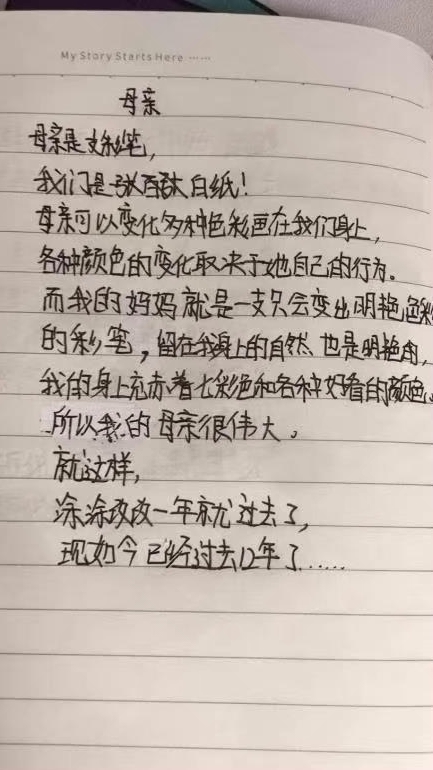 My Story Starts Here ······
母亲
母亲是支彩笔,
我们是张百趺白纸!
母亲可以变化多种色彩画在我们身上,
各种颜色的变化取决于她自己的行为。
而我的妈妈就是一支只会变出明艳色彩
的彩笔,留在我身上的自然也是明艳的,
我的身上充赤着七彩绝和各种好看的颜色。
所以我的母亲很伟大。
就这样,
涂涂改改一年就过去了,
现如今已经过去12年了.....